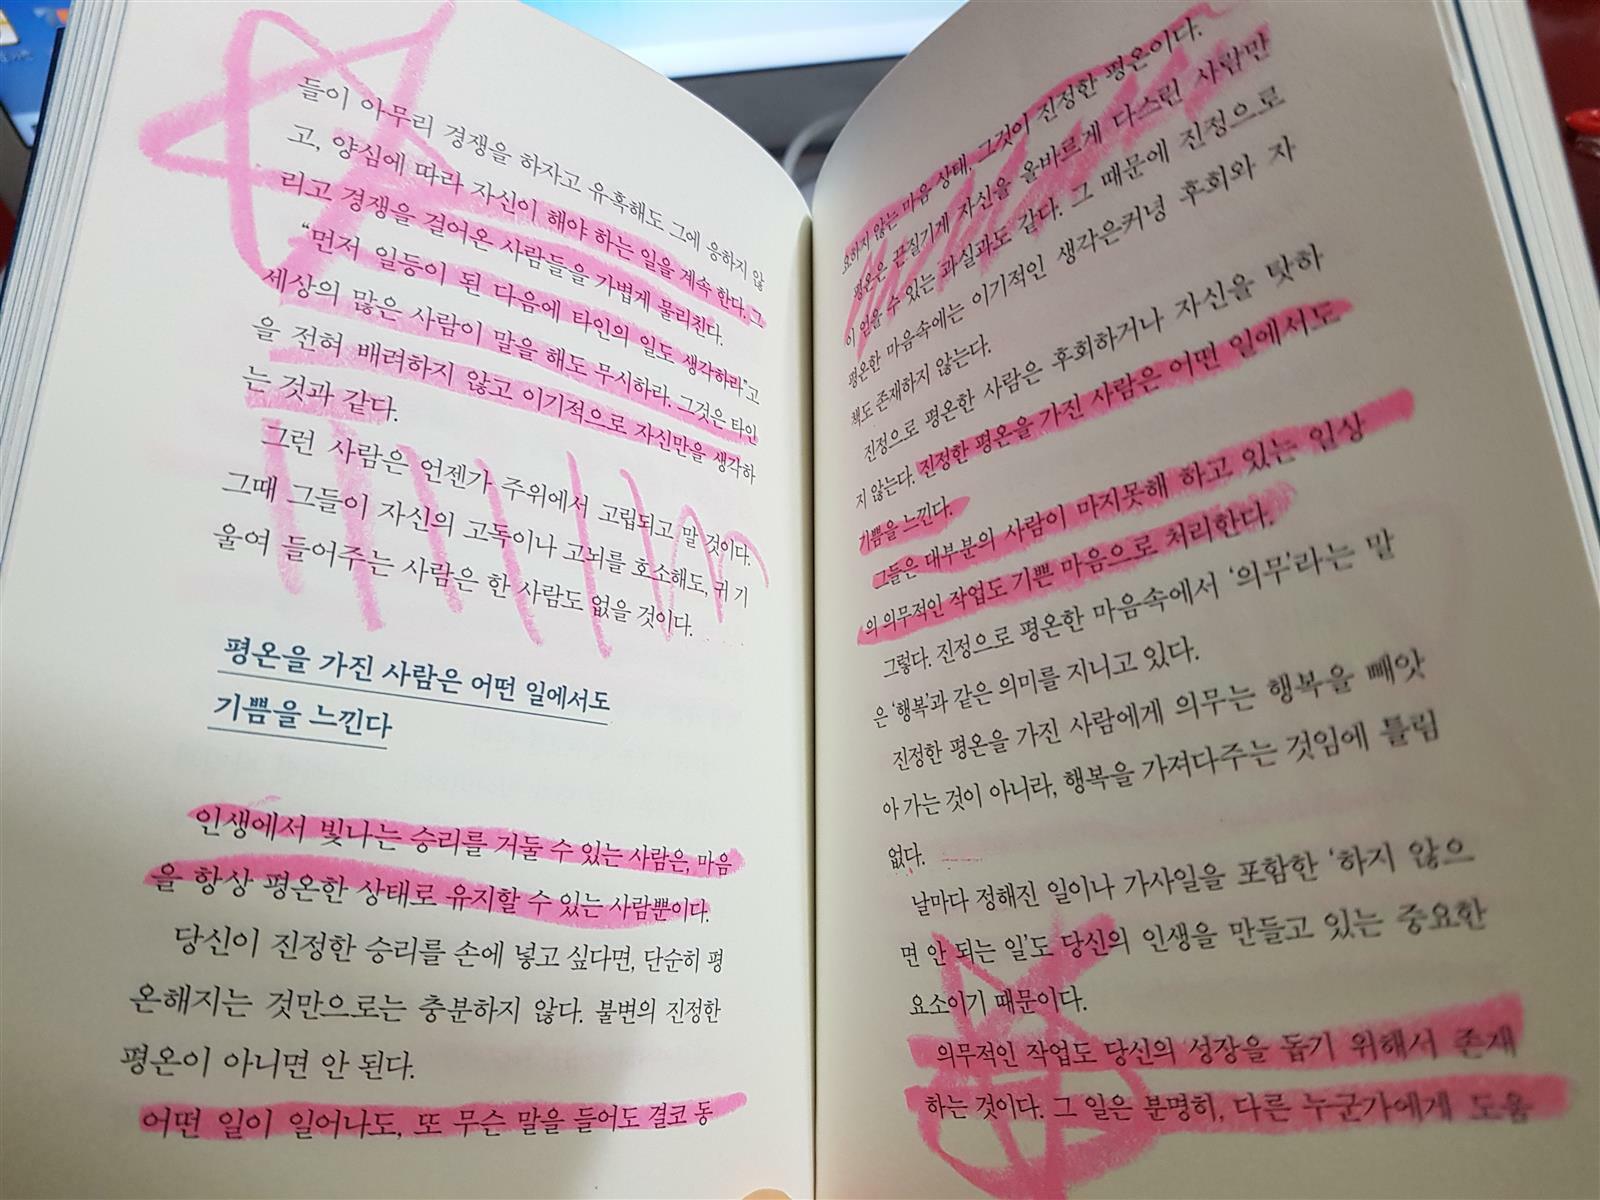 들이 아무리 경쟁을 하자고 유혹해도 그에 응하지 않
고, 양심에 따라 자신이 해야 하는 일을 계속 한다. 그
리고 경쟁을 걸어온 사람들을 가볍게 물리친다.
“먼저 일등이 된 다음에 타인의 일도 생각하라”고
세상의 많은 사람이 말을 해도 무시하라. 그것은 타인
을 전혀 배려하지 않고 이기적으로 자신만을 생각하
는 것과 같다.
그런 사람은 언젠가 주위에서 고립되고 말 것이다.
그때 그들이 자신의 고독이나 고뇌를 호소해도, 귀 기
울여 들어주는 사람은 한 사람도 없을 것이다.
평온을 가진 사람은 어떤 일에서도
기쁨을 느낀다
인생에서 빛나는 승리를 거둘 수 있는 사람은, 마음
을 항상 평온한 상태로 유지할 수 있는 사람뿐이다.
당신이 진정한 승리를 손에 넣고 싶다면, 단순히 평
온해지는 것만으로는 충분하지 않다. 불변의 진정한
평온이 아니면 안 된다.
어떤 일이 일어나도, 또 무슨 말을 들어도 결코 동
요하지 않는 마음 상태, 그것이 진정한 평온이다.
평온은 끈질기게 자신을 올바르게 다스린 사람만
이 얻을 수 있는 과실과도 같다. 그 때문에 진정으로
평온한 마음속에는 이기적인 생각은커녕 후회와 자
책도 존재하지 않는다.
진정으로 평온한 사람은 후회하거나 자신을 탓하
지 않는다. 진정한 평온을 가진 사람은 어떤 일에서도
기쁨을 느낀다.
그들은 대부분의 사람이 마지못해 하고 있는 일상
의 의무적인 작업도 기쁜 마음으로 처리한다.
그렇다. 진정으로 평온한 마음속에서 ‘의무’라는 말
은 ‘행복’과 같은 의미를 지니고 있다.
진정한 평온을 가진 사람에게 의무는 행복을 빼앗
아 가는 것이 아니라, 행복을 가져다주는 것임에 틀림
없다.
날마다 정해진 일이나 가사일을 포함한 ‘하지 않으
면 안 되는 일’도 당신의 인생을 만들고 있는 중요한
요소이기 때문이다.
의무적인 작업도 당신의 성장을 돕기 위해서 존재
하는 것이다. 그 일은 분명히, 다른 누군가에게 도움